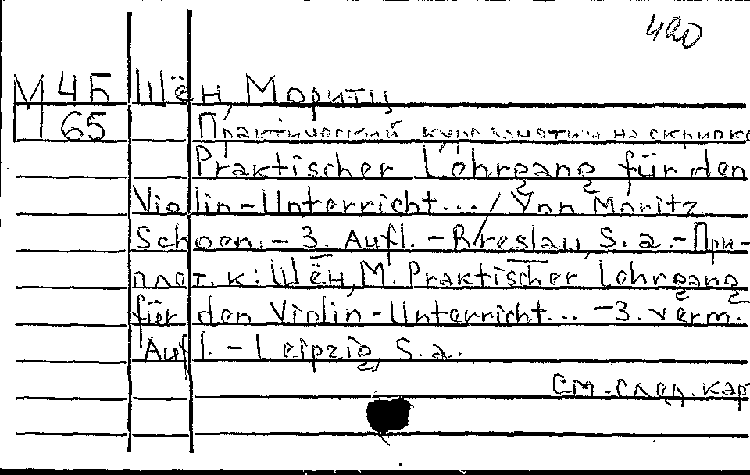 490
М 4Б Шён, Моритц
Ш 65 Практический курс занятий на скрипке
Praktischer Lehrgang für den
Violin-Unterricht... / Von Moritz
Schoen. - 3. Aufl. - Breslau, S. a. - При-
плет. к: Шён, М. Praktischer Lehrgang
für den Violin-Unterricht... - 3. verm.
Aufl. - Leipzig, S. a.
См. след. кар